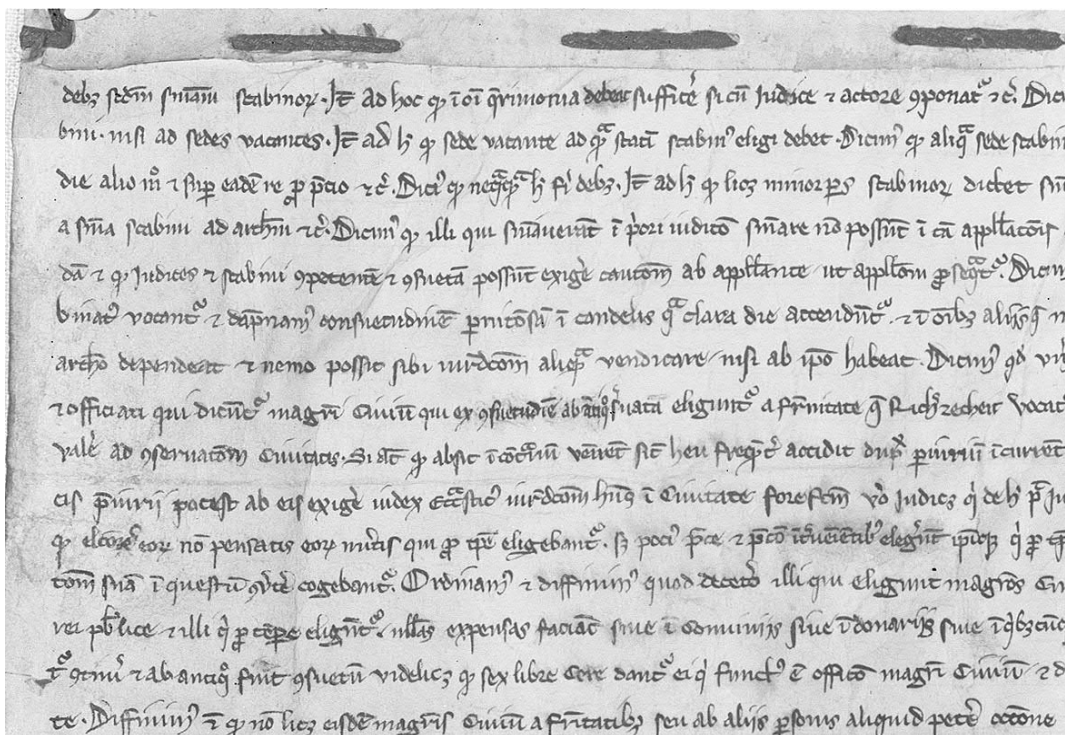 debꝫ scdm sniam scabinoꝝ. It ad hoc qꝫ ī oī q̄rimonia debeat sufficeꝰ si cū Iudice ⁊ actore ꝯponatᷣ ⁊c̄. Dici
bini. nisi ad sedes vacantes. It ad h̄ qꝫ sede vacante ad qᷓ statī scabinꝰ eligi debet. Dicimꝰ qꝫ aliqᷓ sede scabin
die alio mº ⁊ suꝑ eadē re ꝓ p̄cio ⁊c̄. Dicꝰ qꝫ neqᷓqᷓ h̄ fi debꝫ. It ad h̄ qꝫ licꝫ minor ꝑs scabinoꝝ dictet sn
a snia scabini ad archm ⁊c̄. Dicimꝰ qꝫ illi qui sniaverūt ī p̄ori iudico sniare nō possūt ī cā appllacois
dā ⁊ qꝫ Iudices ⁊ scabini ꝯpetentē ⁊ ꝯsuetā possūt exigeꝰ cautōm ab appllante ut appllōm ꝓseqᷓtᷣ. Dicim
binatꝰ vocantᷣ ⁊ dāpnamꝰ consuetudinē ꝑnitosā ī candelis qᷓ clara die accendūtᷣ. ⁊ ī oībꝫ aliis q̄
archo dependeat ⁊ nemo possit sibi iurdcōm aliqᷓ vendicare nisi ab ipō habeat. Dicimꝰ qd
⁊ officiati qui dicūtᷣ magrī Ciuiū qui ex ꝯsuetudīe ab ātiqº ẜuata eliguntᷣ a frnitate q̄ Richrzecheit vocat
valeꝰ ad ꝯseruatōm Ciuitatis. Si aūt qꝫ absit ī ꝯtᷓriū veneīt sic heu freqᷓtꝰ accidit duplꝰ ꝑiuriū īcurrent
eis ꝑiurii potest ab eis exigeꝰ iudex Eccᷓsticꝰ iurdcōm hn̄s ī Ciuitate fore fcm vo Iudicꝫ qi de h̄ pᷓ Iu
qꝫ elcoreꝰ eoꝝ nō pensatis eoꝝ mitis qui ꝓ tp̄e eligebantᷣ. sꝫ poci p̄ce ⁊ p̄cō ītᷣuēiētibꝰ elegᷣūt ip̄iqꝫ qi ꝓ tp̄
tōm suā ī questū ꝯv̄tē cogebantᷣ. Ordinamꝰ ⁊ diffinimꝰ quod decetᷣo illi qui eligunt magrōs Ciu
vei pb̄lice ⁊ illi qi ꝓ tēꝑe eligūtᷣ. nullas expensas faciāt siue ī Conuiuiis siue ī donariis siue ī qibꝫcūqꝫ
tᷣ ꝯtinᷣ ⁊ ab antiqº fuit ꝯsuetū videlicꝫ qꝫ sex libre Cere dantᷣ ei qi functꝰ ē officō magrī Ciuiū ⁊ d
te. Diffinimꝰ ⁊ qꝫ nō licꝫ eisdē magris Ciuiū a frnitatibꝫ seu ab aliis ꝑsonis aliquid petē occōne